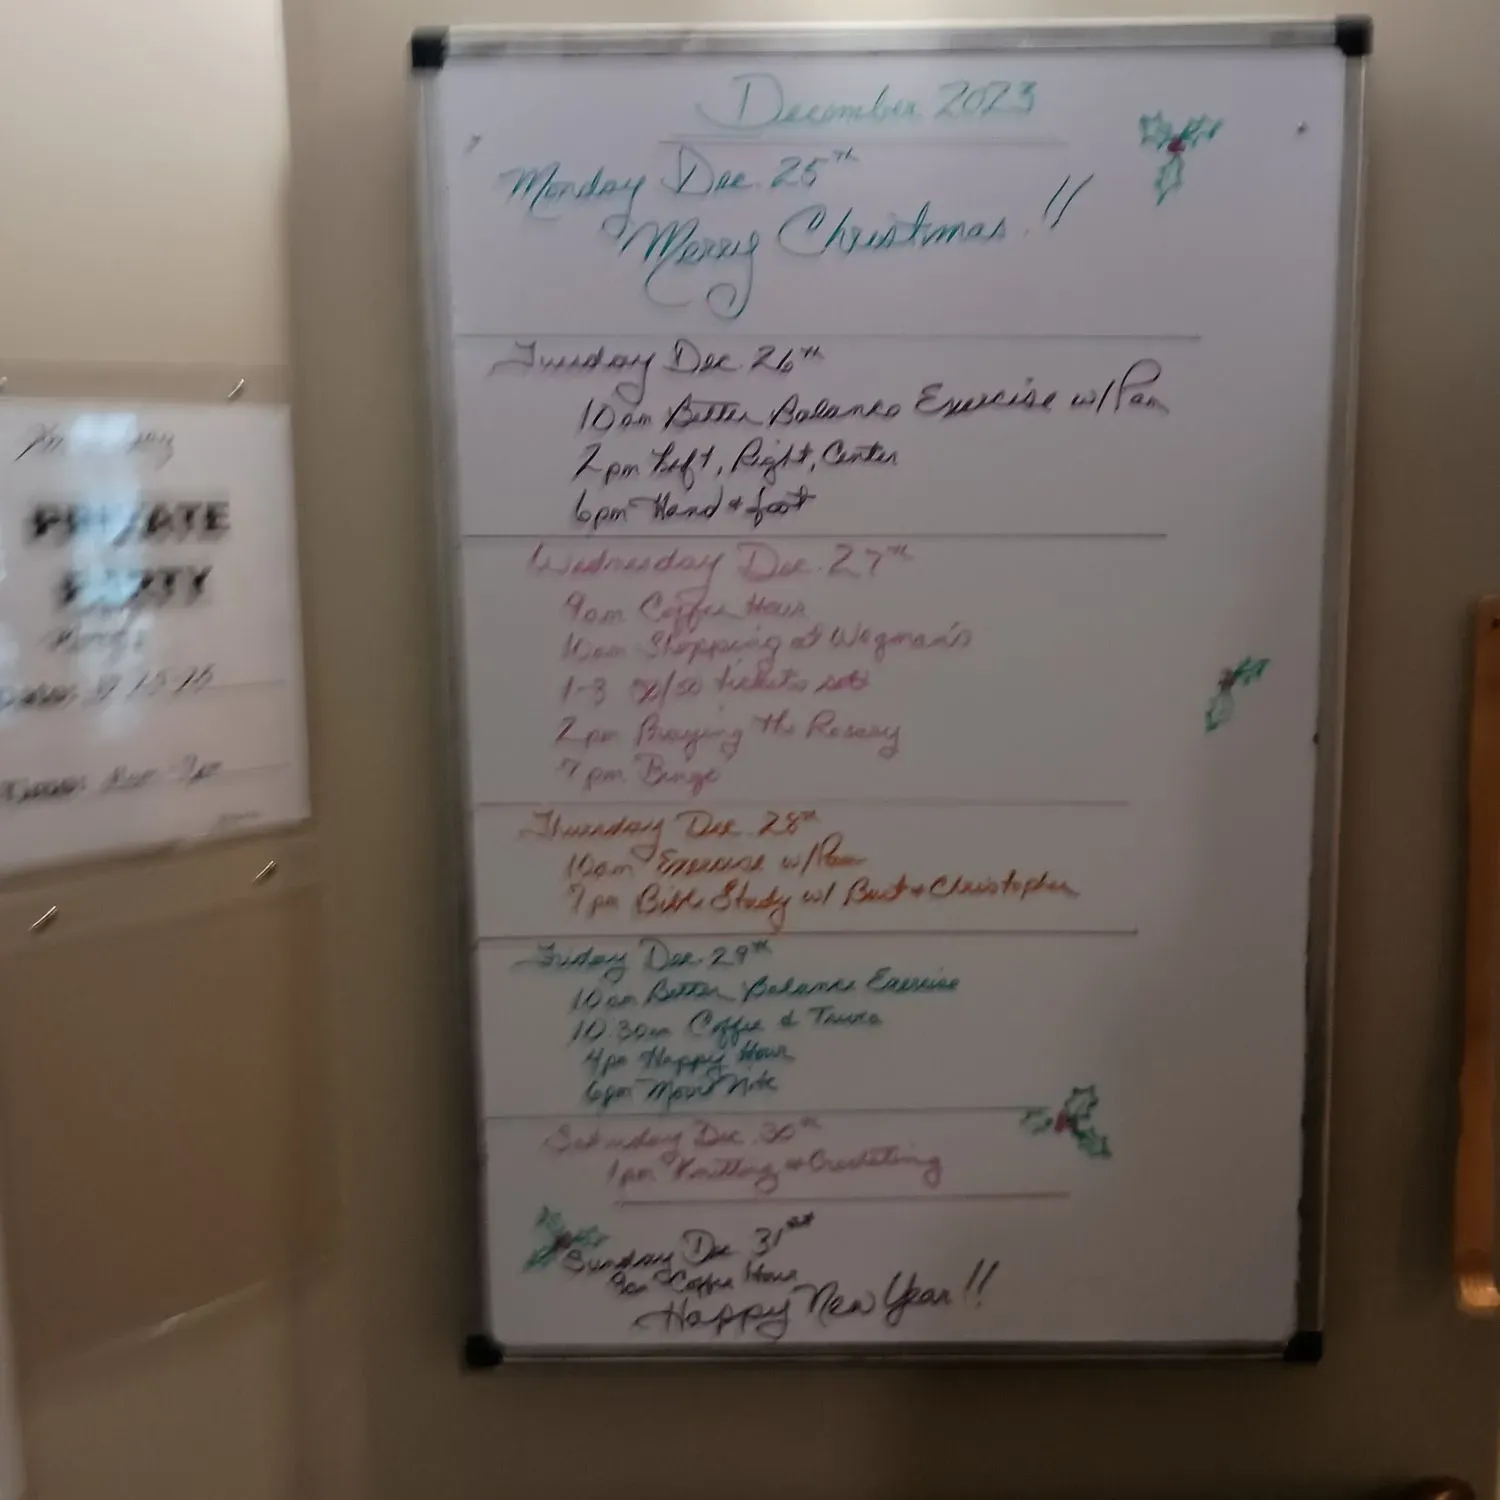 December 2023
Monday Dec. 25th
Merry Christmas!!
Tuesday Dec. 26th
10am Better Balance Exercise w/Pam
2pm Left, Right, Center
6pm Hand & foot
Wednesday Dec. 27th
9am Coffee Hour
10am Shopping at Wegman's
1-3 50/50 tickets
2pm Praying the Rosary
7pm Bingo
Thursday Dec. 28th
10am Exercise w/Pam
7pm Bible Study w/ Burt & Christopher
Friday Dec. 29th
10am Better Balance Exercise
10:30am Coffee & Trivia
4pm Happy Hour
6pm Movie Nite
Saturday Dec. 30th
1pm Knitting & Crocheting
Sunday Dec 31st
9am Coffee Hour
Happy New Year!!
PRIVATE
PARTY